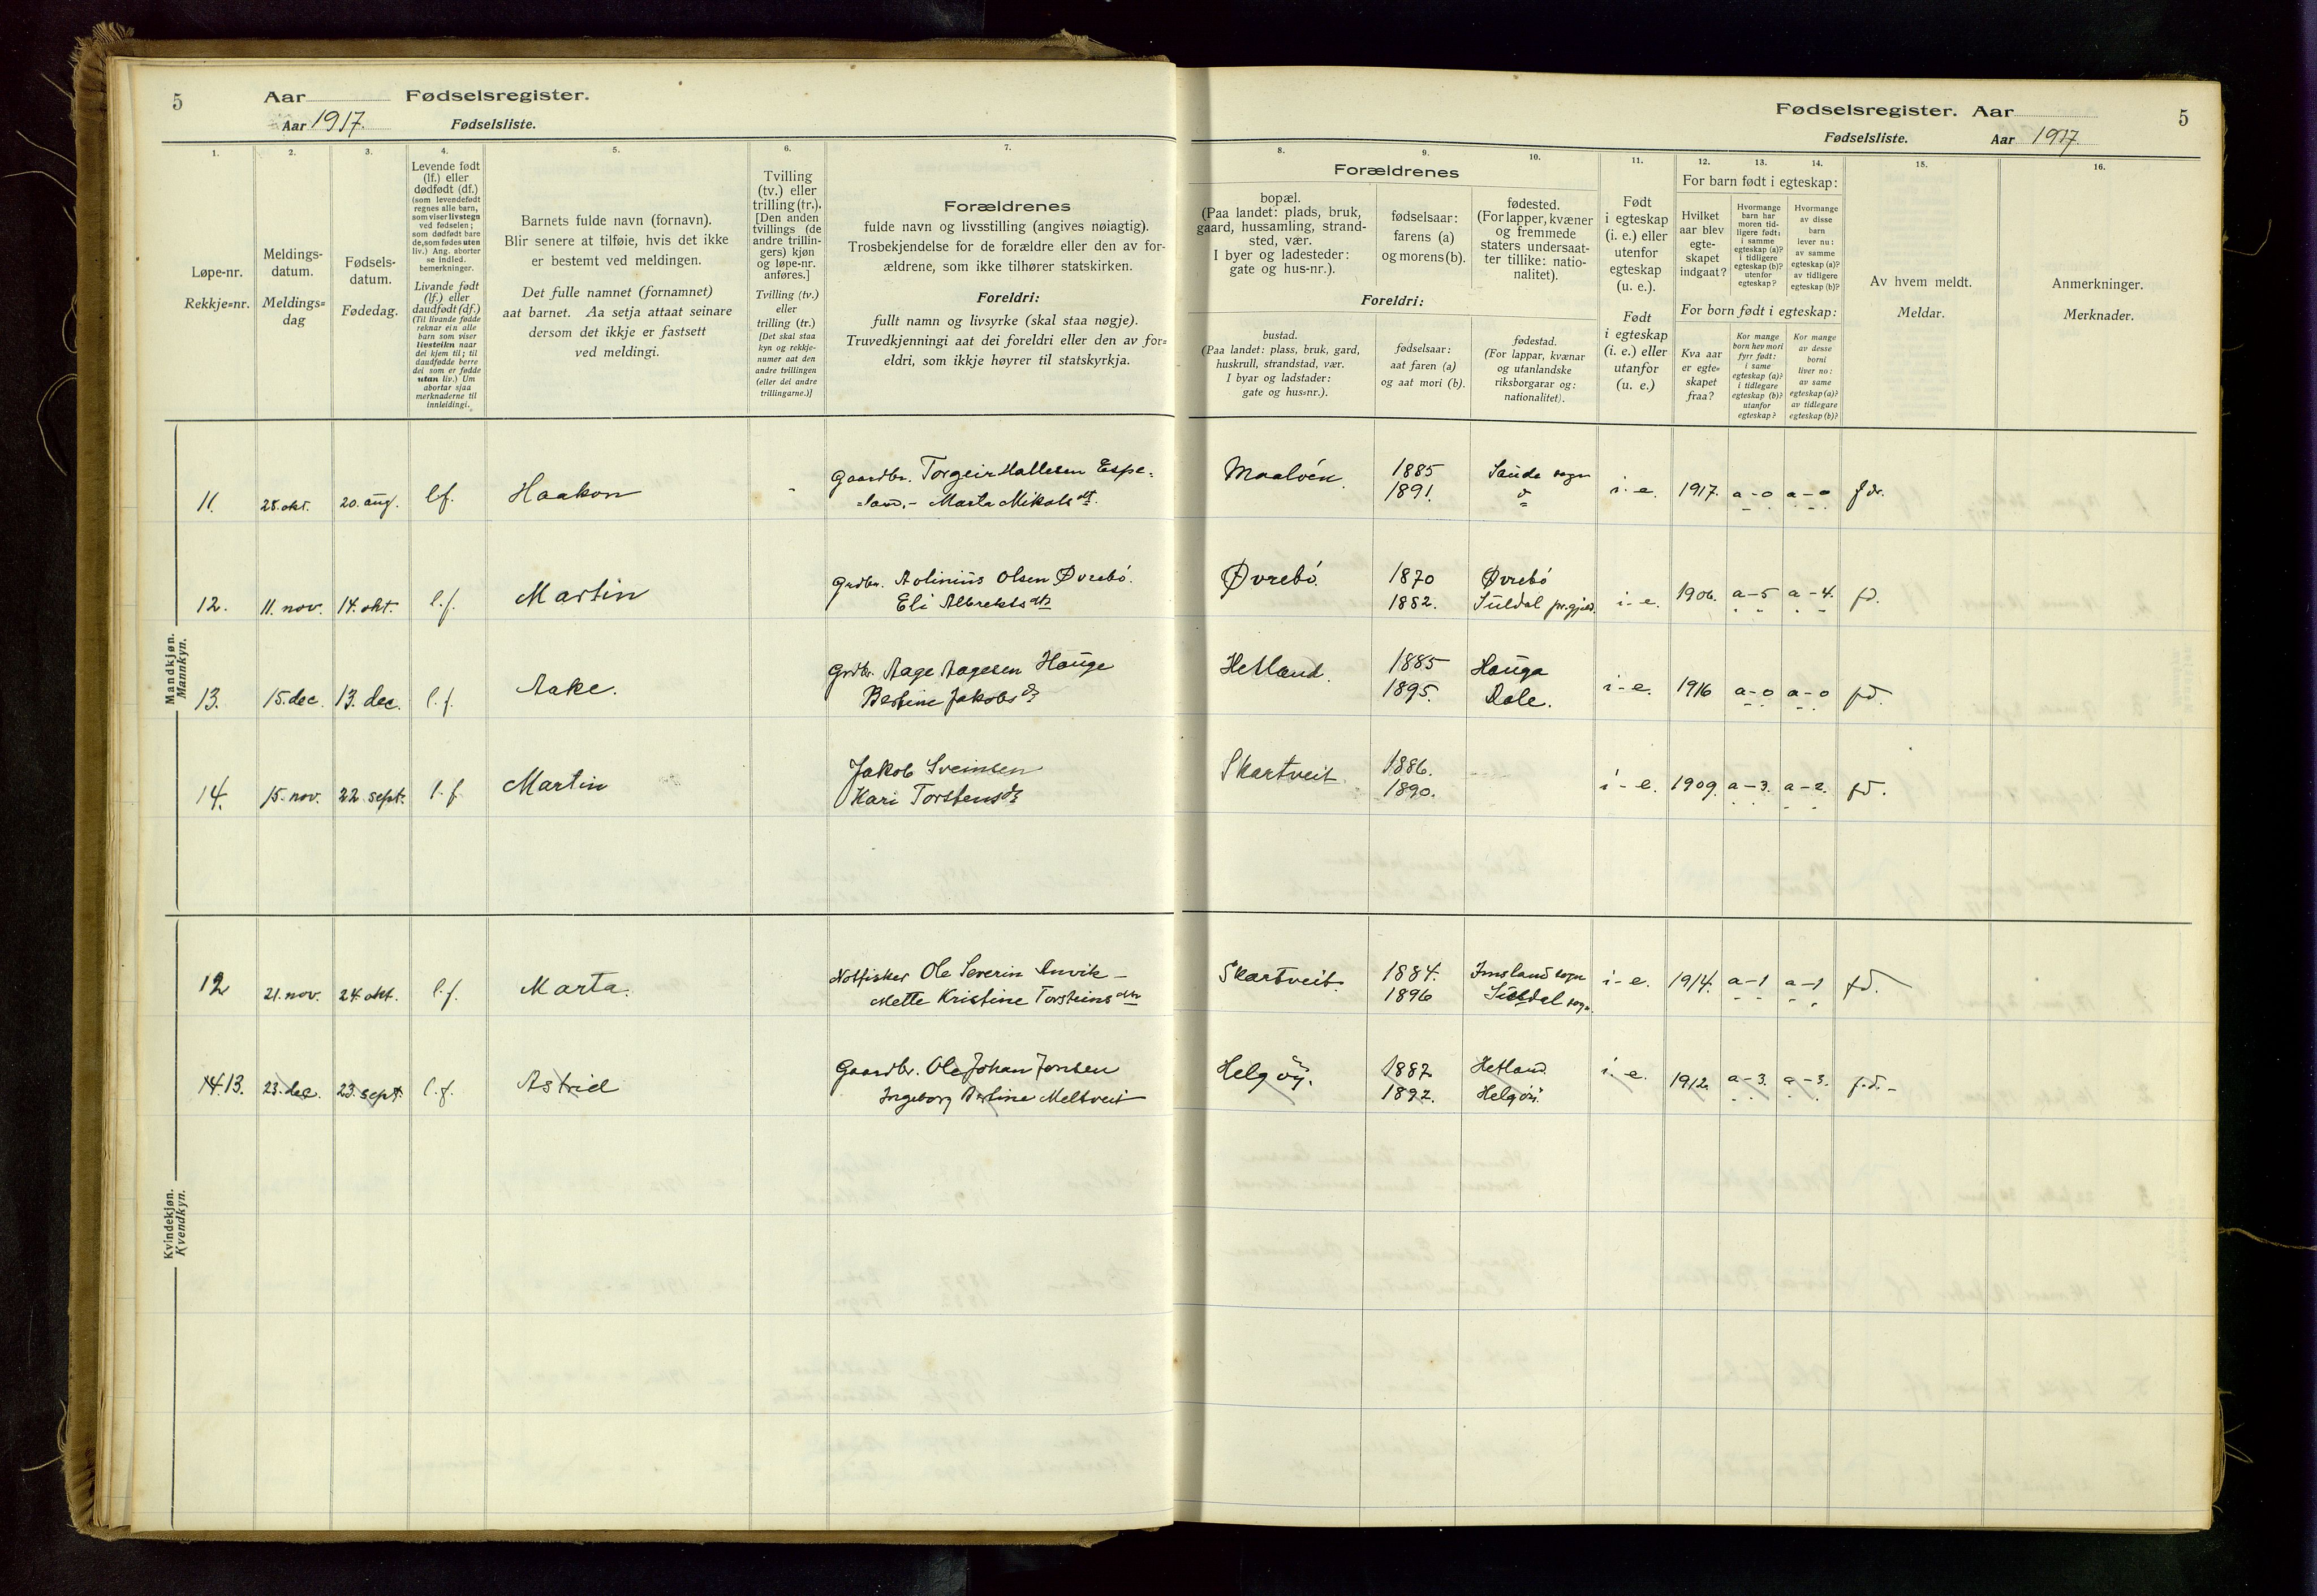 5 Aar Fødselsregister.
Aar 1917. Fødselsliste.
Fødselsregister. Aar 5
Fødselsliste. Aar 1917.
1.
Løpe-nr.
Rekkje=nr.
2.
Meldings-
datum.
Meldings=
dag
3.
Fødsels-
datum.
Fødedag.
4.
Levende født
(lf.) eller
dødfødt (df.)
(som levendefødt
regnes alle barn,
som viser livstegn
ved fødselen;
som dødfødt bare
de, som fødes uten
liv.) Ang. aborter
se indled.
bemerkninger.
Livande født
(lf.) eller
daudfødt (df.)
(Til livande fødde
reknar ein alle
barn som viser
livsteikn naar
dei kjem til; til
daudfødde berre
dei som er fødde
utan liv.) Um
abortar sjaa
merknaderne til
innleidingi.
5.
Barnets fulde navn (fornavn).
Blir senere at tilføie, hvis det ikke
er bestemt ved meldingen.
Det fulle namnet (fornamnet)
aat barnet. Aa setja attaat seinare
dersom det ikkje er fastsett
ved meldingi.
6.
Tvilling
(tv.) eller
trilling (tr.).
[Den anden
tvillings (de
andre trillin-
gers) kjøn
og løpe-nr.
anføres.]
Tvilling (tv.)
eller
trilling (tr.)
[Det skal staa
kyn og rekkje-
numer aat den
andre tvillingen
(eller dei andre
trillingarne.)]
7.
Forældrenes
fulde navn og livsstilling (angives nøiagtig).
Trosbekjendelse for de forældre eller den av for-
ældrene, som ikke tilhører statskirken.
Foreldri:
fullt namn og livsyrke (skal staa nøgje).
Truvedkjenningi aat dei foreldri eller den av for=
eldri, som ikkje høyrer til statskyrkja.
Forældrenes
8.
bopæl.
(Paa landet: plads, bruk,
gaard, hussamling, strand-
sted, vær.
I byer og ladesteder:
gate og hus-nr.).
Foreldri:
bustad.
(Paa landet: plass, bruk, gard,
huskrull, strandstad, vær.
I byar og ladstader:
gate og hus=nr.).
9.
fødselsaar:
farens (a)
og morens (b).
fødselsaar:
aat faren (a)
og aat mori (b).
10.
fødested.
(For lapper, kvæner
og fremmede
staters undersaat-
ter tillike: natio-
nalitet).
fødestad.
(For lappar, kvænar
og utanlandske
riksborgarar og:
nationalitet).
11.
Født
i egteskap
(i. e.) eller
utenfor
egteskap
(u. e.).
Født
i egteskap
(i. e.) eller
utanfor
(u. e.)
For barn født i egteskap:
12.
Hvilket
aar blev
egte-
skapet
indgaat?
13.
Hvormange
barn har
moren tid-
ligere født:
i samme
egteskap (a)?
i tidligere
egteskap (b)?
utenfor
egteskap?
14.
Hvormange
av disse
barn
lever nu:
av samme
egteskap (a)?
av tidligere
egteskap (b)?
For born født i egteskap:
Kva aar
er egte=
skapet
fraa?
Kor mange
born hev mori
fyrr født:
i same
egteskap (a)?
i tidlegare
egteskap (b)?
utanfor
egteskap?
Kor mange
av desse
borni
liver no:
av same
egteskap (a)?
av tidlegare
egteskap (b)?
15.
Av hvem meldt.
Meldar.
16.
Anmerkninger.
Merknader.
Mandkjøn.
Mannkyn.
11. 28. okt. 20. aug. lf. Haakon - Gaardbr. Torgeir Hallesen Espe=
=land, - Marta Mikals dt.
1885 Sauda sogn
1891. i. e. 1917. a-0 a-0
12. 11. nov. 14. okt. l. f. Martin Grdbr. Olsen Øvrebö.
Eli Albrekts dtr
Øvrebö. 1870 Øvrebö
1882. Suldal pr.gjeld. i. e. 1906. a-5 a-4. fd.
13. 15. dec. 13. dec. l. f. Aake. Grdbr. Aage Aagesen Hauge
Bertine Jakobs d
Hetland. 1885 Hauga
1895. Dale. i-e. 1916 a-0 a-0 fd.
14. 15. nov. 22. sept. l. f. Martin Jakob Sveinsen
Kari Torstens d
Skartveit 1886.
1890. i-e. 1909. a-3. a-2. fd.
Kvindekjøn.
Kvendkyn.
12 21. nov. 24. okt. l. f. Marta. Notfisker Ole Severin -
Mette Kristine Torsteins dtr
Skartveit. 1884. Imsland sogn
1896 Suldal sogn. i-e. 1914. a-1 a-1 fd.
14. 13. 23. dec. 23. sept. l. f. Astrid Gaardbr. Ole Johan Jonsen
Ingeborg Bertine Meltveit
Helgöy. 1887 Hetland.
1892. Helgöy. i. e. 1912. a-3. a-3. f. d. -